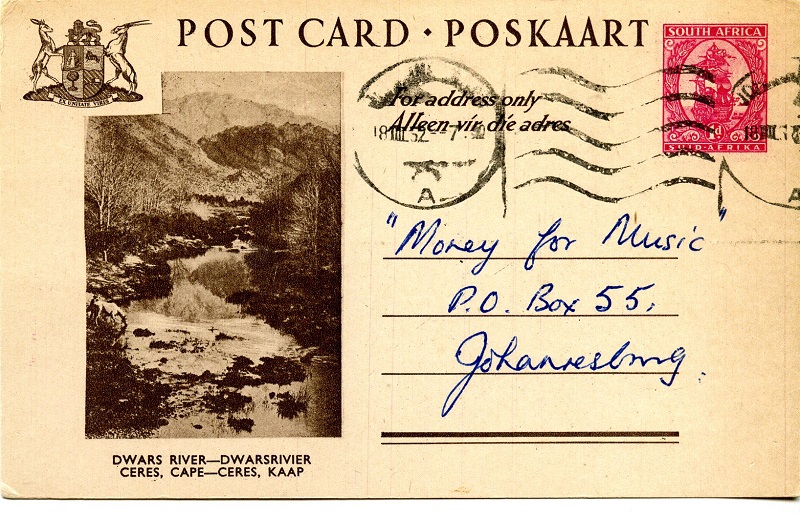 POST CARD · POSKAART
EX UNITATE VIRES
SOUTH AFRICA
1d
SUID-AFRIKA
For address only
Alleen vir die adres
18 VIII 52 - 7
A
18 VIII
A
"Money for Music"
P.O. Box 55,
Johannesburg.
DWARS RIVER—DWARSRIVIER
CERES, CAPE—CERES, KAAP